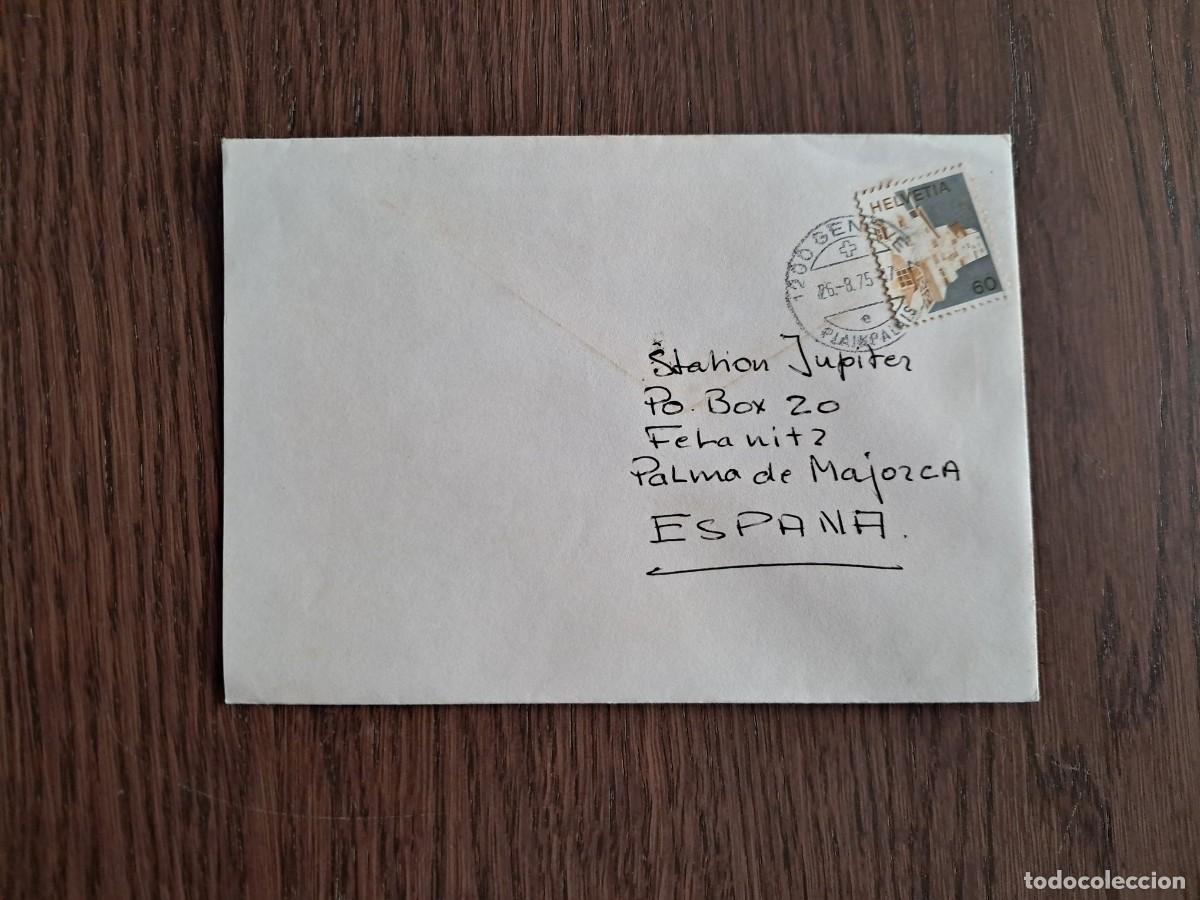 HELVETIA
60
1200 GENÈVE
26.-8.75
e
PLAINPALAIS
Station Jupiter
Po. Box 20
Felanitz
Palma de Majorca
ESPANA.
todocoleccion